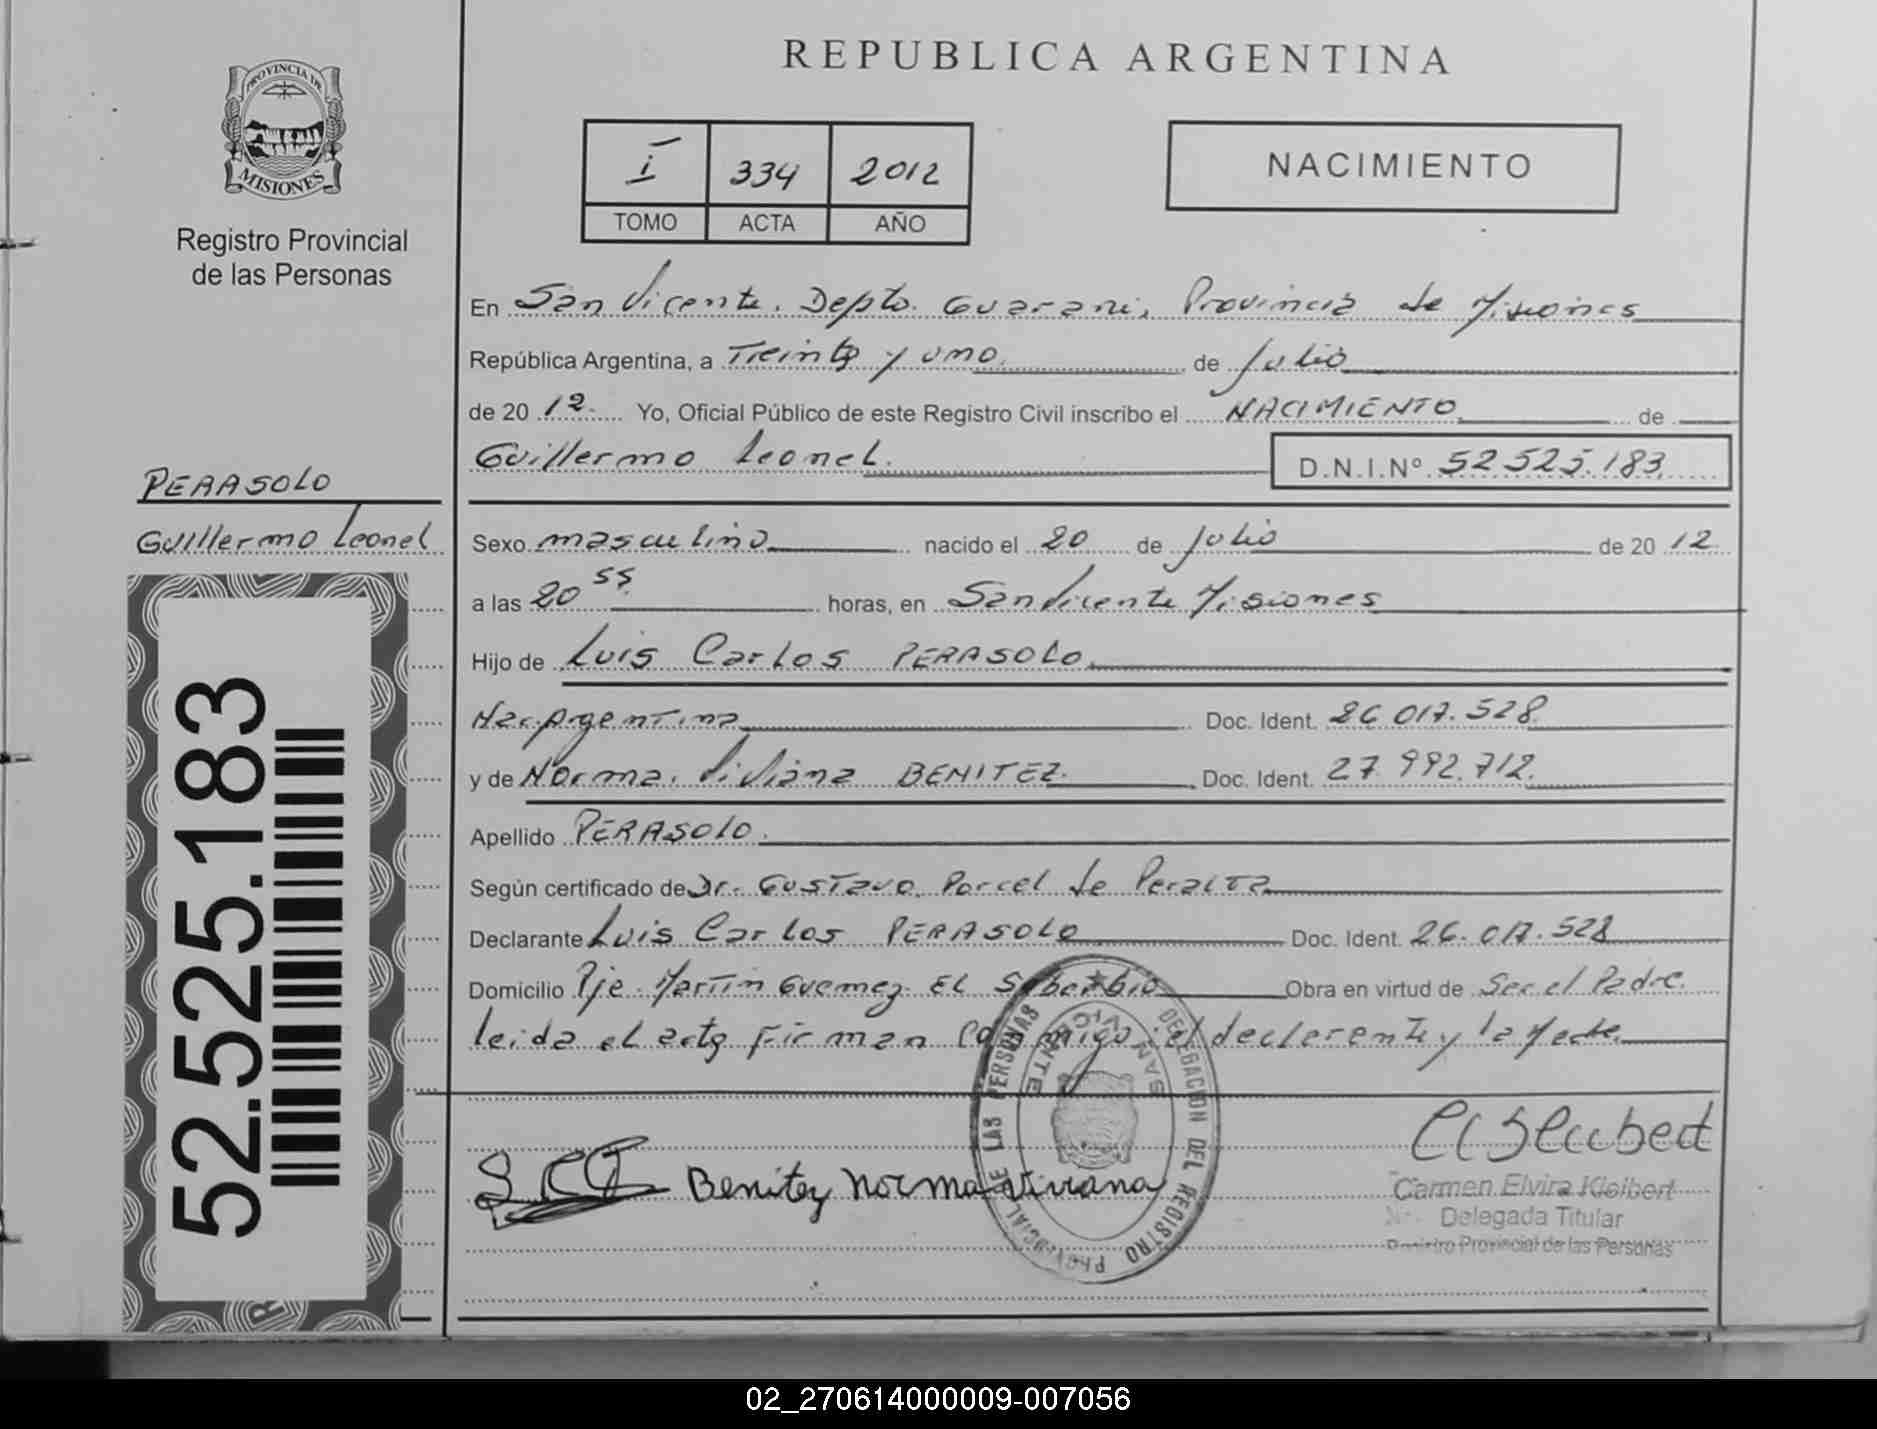 REPUBLICA ARGENTINA
PROVINCIA DE
MISIONES
Registro Provincial
de las Personas
I 334 2012
TOMO ACTA AÑO
NACIMIENTO
En San Vicente. Depto. Guarani, Provincia de Misiones
República Argentina, a Treinta y uno de Julio
de 20 12 Yo, Oficial Público de este Registro Civil inscribo el NACIMIENTO de
Guillermo Leonel.
D.N.I.Nº 52.525.183
PERASOLO
Guillermo Leonel
Sexo masculino nacido el 20 de Julio de 20 12
a las 20 55 horas, en San Vicente Misiones
Hijo de Luis Carlos PERASOLO
Nac. Argentina Doc. Ident. 26.017.528
y de Norma Viviana BENITEZ Doc. Ident. 27.992.712.
Apellido PERASOLO.
Según certificado de Dr. Gustavo Porcel de Peralta
Declarante Luis Carlos PERASOLO Doc. Ident. 26.017.528
Domicilio Pje. Martin Guemez El Soberbio Obra en virtud de Ser el Padre.
leida el acta firman conmigo el declarente y la Madre
52.525.183
DELEGACION DEL REGISTRO PROVINCIAL DE LAS PERSONAS
SAN VICENTE
Benitez Norma Viviana
Carmen Elvira Kielbert
Delegada Titular
Registro Provincial de las Personas
02_270614000009-007056